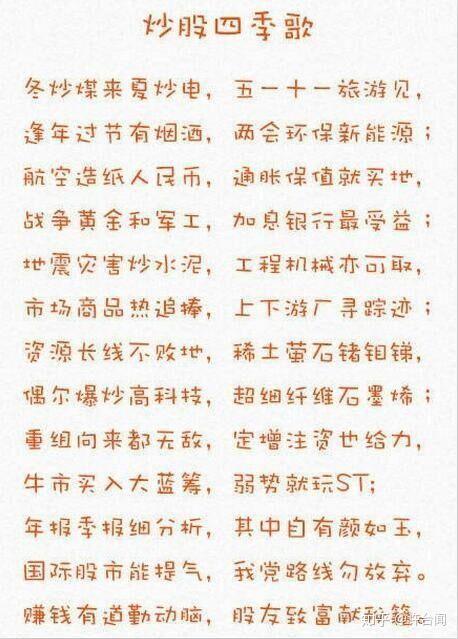 炒股四季歌
冬炒煤来夏炒电，五一十一旅游见，
逢年过节有烟酒，两会环保新能源；
航空造纸人民币，通胀保值就买地，
战争黄金和军工，加息银行最受益；
地震灾害炒水泥，工程机械亦可取，
市场商品热追捧，上下游厂寻踪迹；
资源长线不败地，稀土萤石锗钼锑，
偶尔爆炒高科技，超细纤维石墨烯；
重组向来都无敌，定增注资也给力，
牛市买入大蓝筹，弱势就玩ST；
年报季报细分析，其中自有颜如玉，
国际股市能提气，我党路线勿放弃。
赚钱有道勤动脑，股友致富献
知乎
台闻